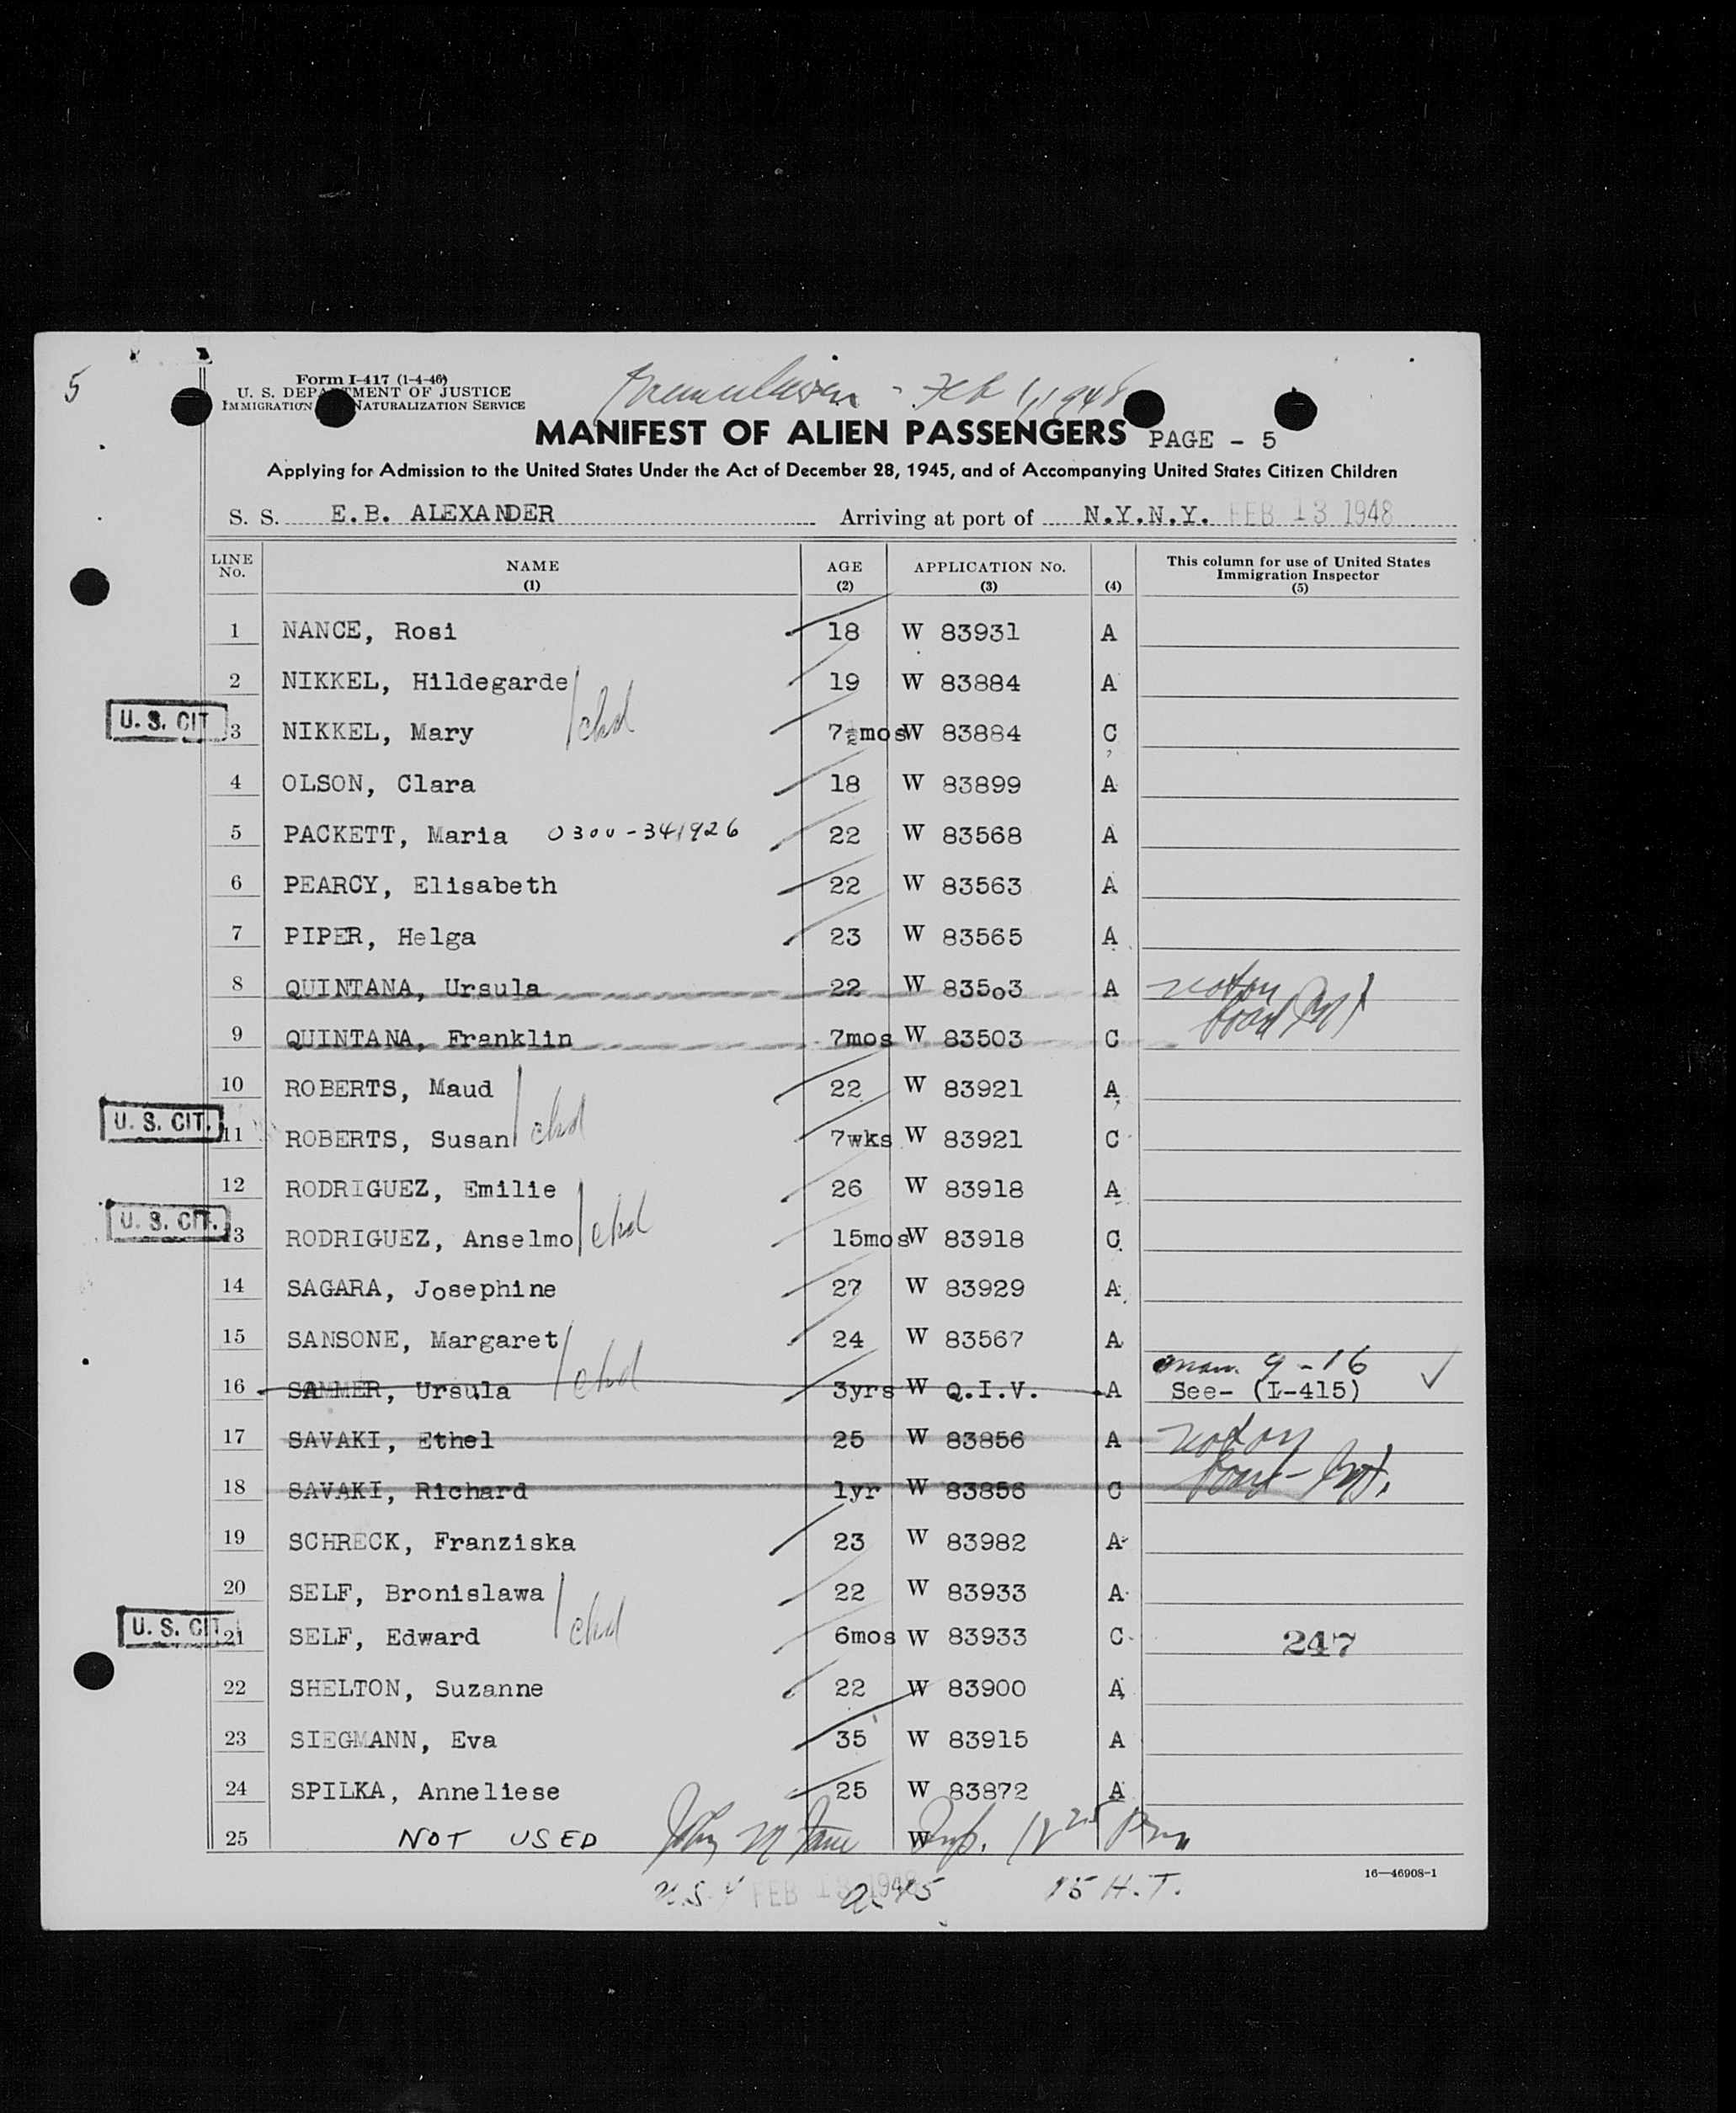 5
Form I-417 (1-4-46)
U. S. DEPARTMENT OF JUSTICE
IMMIGRATION NATURALIZATION SERVICE
Feb 1, 1948
MANIFEST OF ALIEN PASSENGERS PAGE - 5
Applying for Admission to the United States Under the Act of December 28, 1945, and of Accompanying United States Citizen Children
S. S. E.B. ALEXANDER Arriving at port of N.Y.N.Y. FEB 13 1948
LINE No. NAME (1) AGE (2) APPLICATION No. (3) (4) This column for use of United States Immigration Inspector (5)
1 NANCE, Rosi 18 W 83931 A
2 NIKKEL, Hildegarde 19 W 83884 A
U. S. CIT 3 NIKKEL, Mary chd 7½mos W 83884 C
4 OLSON, Clara 18 W 83899 A
5 PACKETT, Maria 0300-341926 22 W 83568 A
6 PEARCY, Elisabeth 22 W 83563 A
7 PIPER, Helga 23 W 83565 A
8 QUINTANA, Ursula 22 W 83503 A not on
9 QUINTANA, Franklin 7mos W 83503 C board
10 ROBERTS, Maud 22 W 83921 A
U. S. CIT. 11 ROBERTS, Susan chd 7wks W 83921 C
12 RODRIGUEZ, Emilie 26 W 83918 A
U. S. CIT. 13 RODRIGUEZ, Anselmo chd 15mos W 83918 C
14 SAGARA, Josephine 27 W 83929 A
15 SANSONE, Margaret 24 W 83567 A
16 SAMMER, Ursula chd 3yrs W Q.I.V. A man. 9-16 See- (I-415) ✓
17 SAVAKI, Ethel 25 W 83856 A not on
18 SAVAKI, Richard 1yr W 83856 C board
19 SCHRECK, Franziska 23 W 83982 A
20 SELF, Bronislawa 22 W 83933 A
U. S. CIT. 21 SELF, Edward chd 6mos W 83933 C 247
22 SHELTON, Suzanne 22 W 83900 A
23 SIEGMANN, Eva 35 W 83915 A
24 SPILKA, Anneliese 25 W 83872 A
25 NOT USED John M W Insp.
16—46908-1
FEB 13 1948 15 H.T.